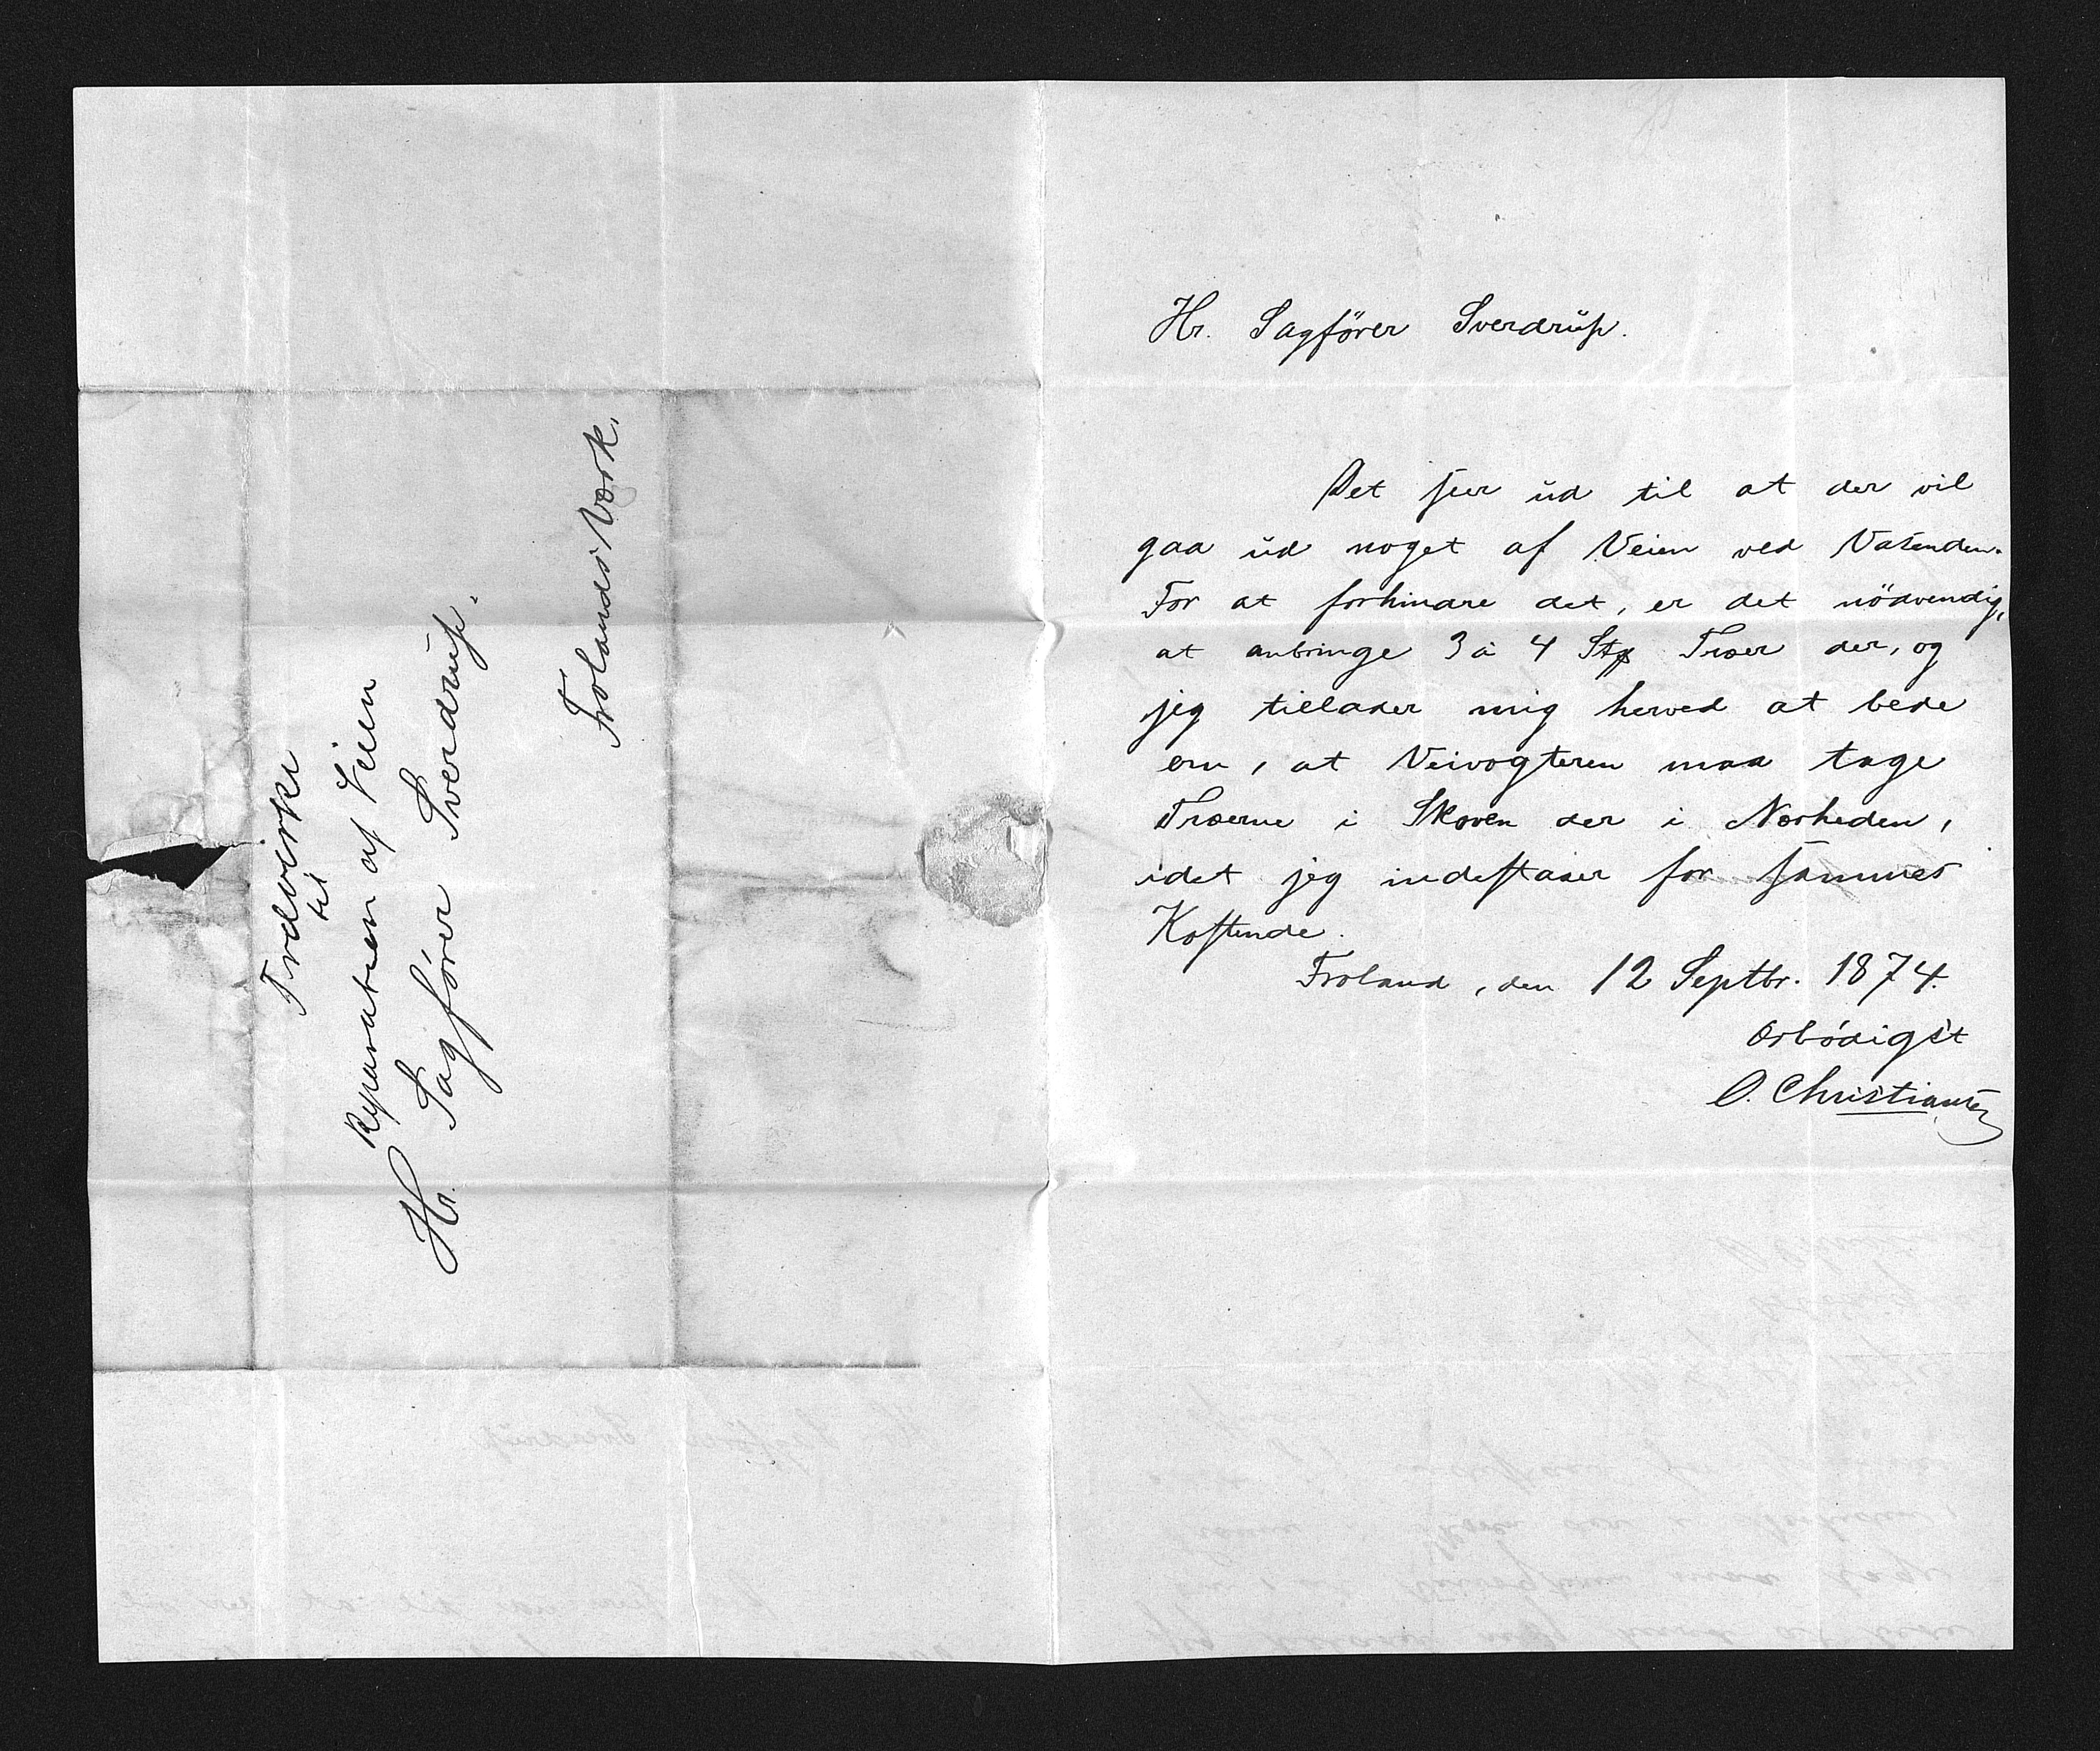 Trelvirke
til
Reparation af Veien
Hr. Sagfører Sverdrup.
Frolands Værk.
Hr. Sagförer Sverdrŭp.
Det seer ŭd til at der vil
gaa ŭd noget af Veien ved Vasenden.
For at forhindre det, er det nödvendig,
at anbringe 3 à 4 Stk Træer der, og
jeg tillader mig herved at bede
om, at Veivogteren maa tage
Træerne i Skoven der i Nærheden,
idet jeg indestaaer for sammes
Kostende.
Froland, den 12 Septbr. 1874.
Ærbödigst
O. Christiansen